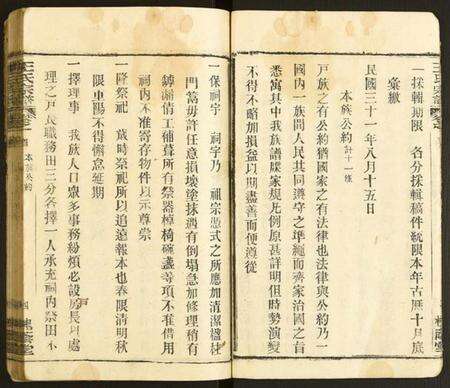 一採輯期限 各分採輯稿件統限本年古曆十月底
彙繳
民國三十一年八月十五日
本族公約計十一條
戶族之有公約猶國家之有法律也法律與公約乃一
國內一族間人民共同遵守之準繩而齊家治國之旨
悉寓其中我族譜牒家規凡例原甚詳明但時勢演變
不得不略加損益以期盡善而便遵從
一保祠宇 祠字乃 祖宗憑式之所應加清潔楹柱
門簷毋許任意損壞塗抹遇有倒塌急加修理稍有
罅漏僱工補葺所有祭器棹椅碗盞等項不准借用
祠內不准寄存物件以示尊崇
一隆祭祀 歲時祭祀所以追遠報本也春限清明秋
限重陽不得懈怠延期
一擇理事 我族人口眾多事務紛煩必設戶長以處
理之戶長職務由三分各擇一人承充祠內祭田不
王氏宗譜
本族公約